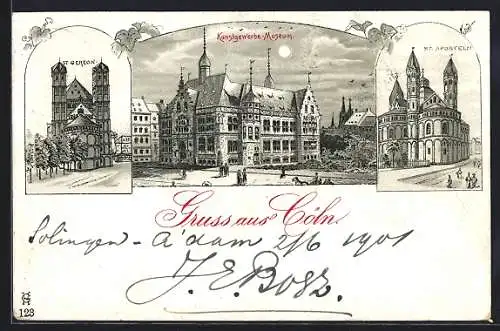 Kunstgewerbe-Museum.
ST. GEREON
ST. APOSTELN
Gruss aus Cöln.
Solingen - A'dam 2/6 1901
J. E. Bosz.
123